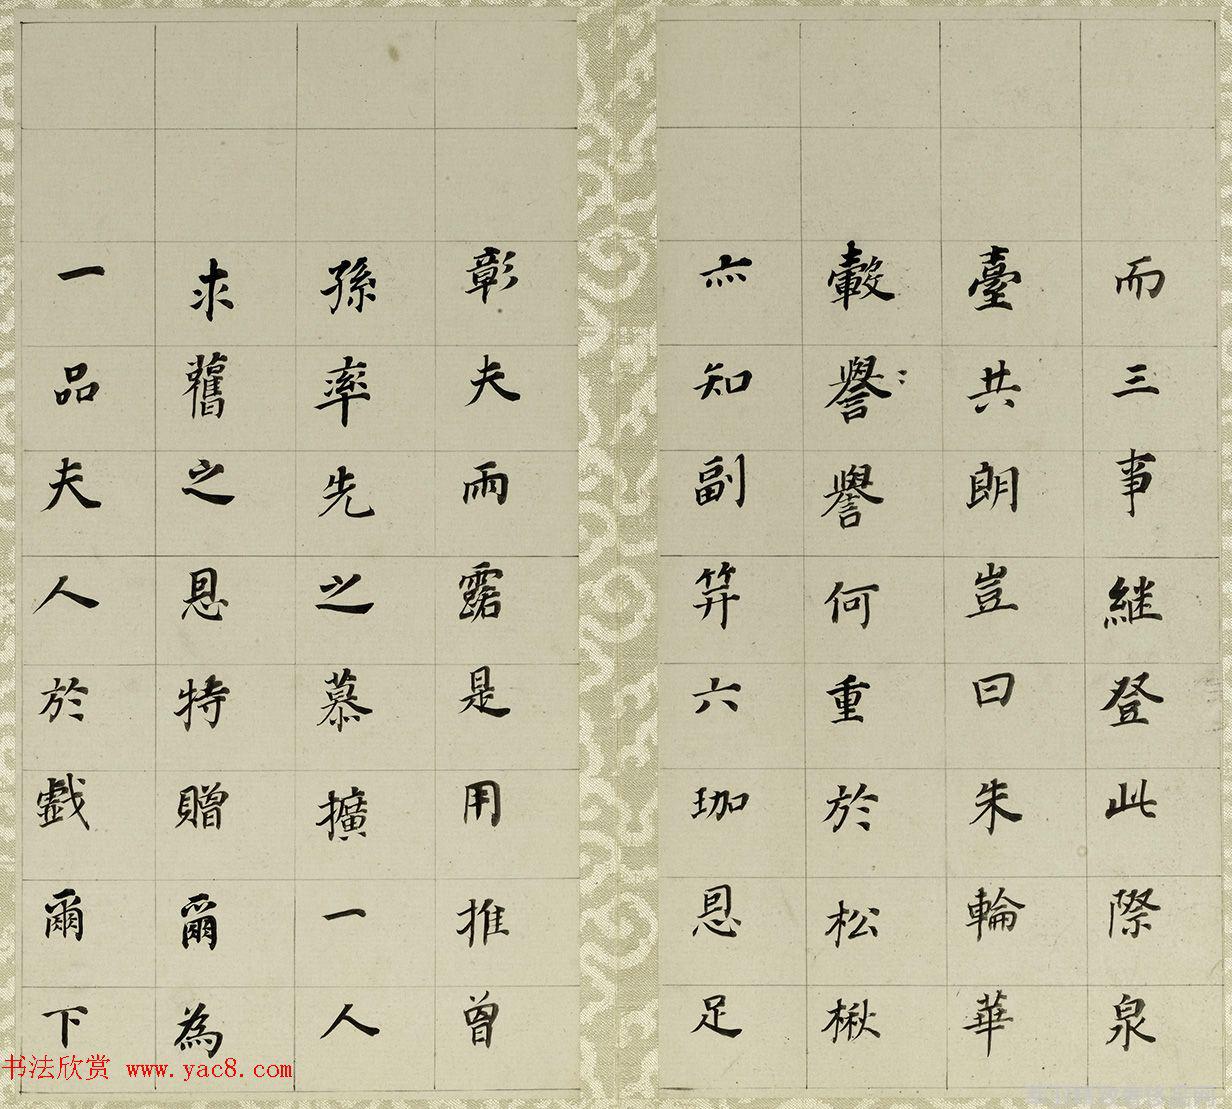 而三事繼登此際泉
臺共朗豈曰朱輪華
轂譽譽何重於松楸
亦知副笄六珈恩足
彰夫雨露是用推曾
孫率先之慕擴一人
求舊之恩特贈爾為
一品夫人於戲爾下
书法欣赏 www.yac8.com